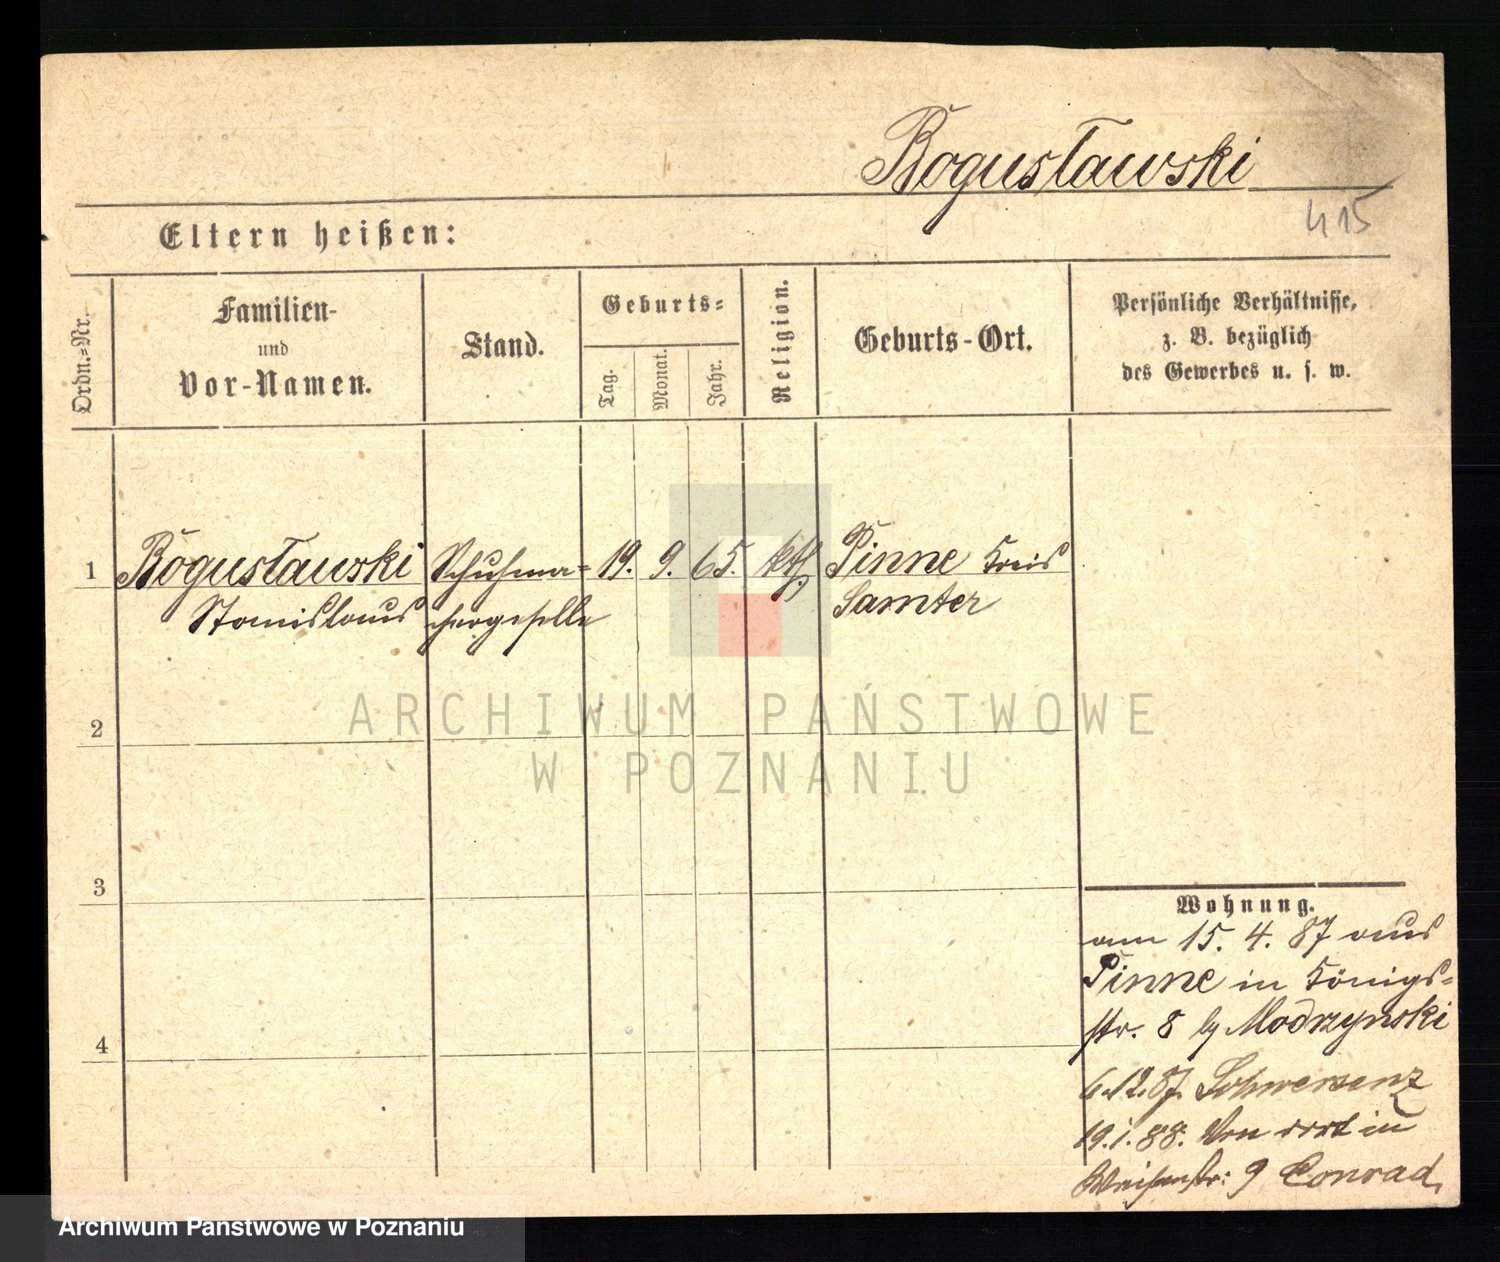 Bogusławski
415
Eltern heißen:
Ordn.=Nr.
Familien-
und
Vor-Namen.
Stand.
Geburts=
Tag.
Monat.
Jahr.
Religion.
Geburts-Ort.
Persönliche Verhältnisse,
z. B. bezüglich
des Gewerbes u. s. w.
1 Bogusławski Schuhma= 19. 9. 65. kth Pinne Kreis
Stanislaus chergeselle Samter
2
3
4
Wohnung.
am 15. 4. 87 aus
Pinne in Königs=
str. 8 by Modrzynski
6.12.87. Schwersenz
19.1.88. Von dort in
9 Conrad.
ARCHIWUM PAŃSTWOWE
W POZNANIU
Archiwum Państwowe w Poznaniu